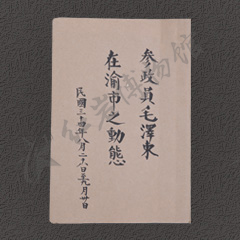 参政員毛澤東
在渝市之動態
民國三十四年八月二十八日至九月廿日